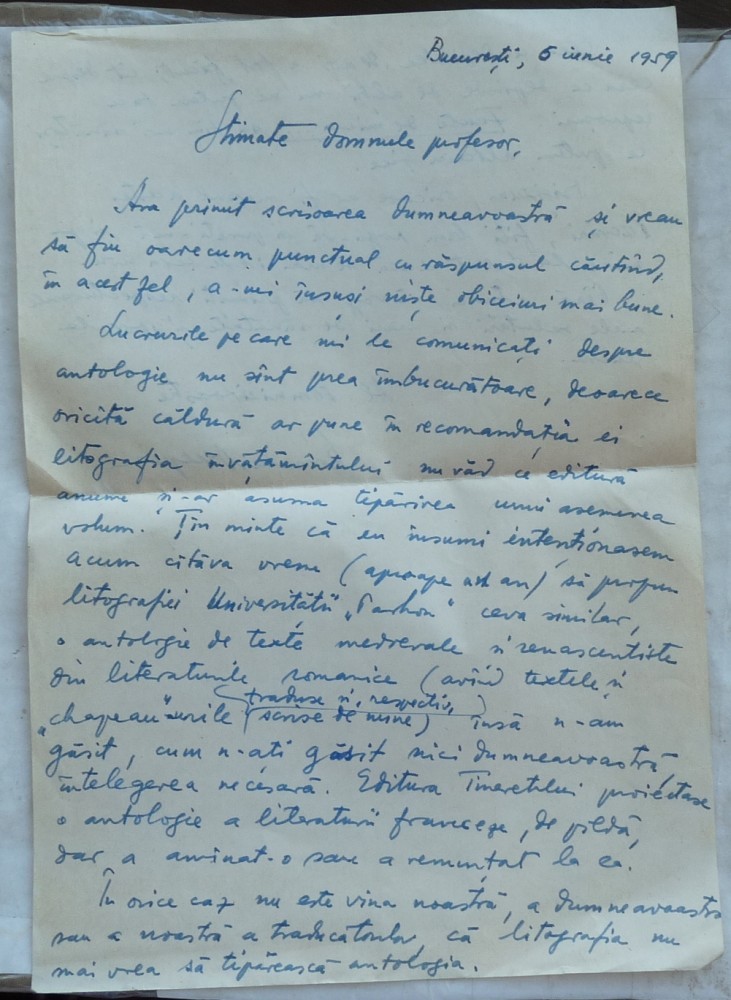 București, 5 iunie 1959
Stimate domnule profesor,
Am primit scrisoarea dumneavoastră și vreau
să fiu oarecum punctual cu răspunsul căutînd,
în acest fel, a-mi însuși niște obiceiuri mai bune.
Lucrurile pe care mi le comunicați despre
antologie nu sînt prea îmbucurătoare, deoarece
oricîtă căldură ar pune în recomandația ei
litografia învățămîntului nu văd ce editură
anume și-ar asuma tipărirea unui asemenea
volum. Țin minte că eu însumi intenționasem
acum cîtăva vreme (aproape un an) să propun
litografiei Universității „Parhon" ceva similar,
o antologie de texte medievale și renascentiste
din literaturile romanice (avînd textele și
„chapeau"-urile (traduse și, respectiv,
scrise de mine) însă n-am
găsit, cum n-ați găsit nici dumneavoastră,
înțelegerea necesară. Editura Tineretului proiectase
o antologie a literaturii franceze, de pildă,
dar a amînat-o sau a renunțat la ea.
În orice caz nu este vina noastră, a dumneavoastră
sau a noastră a traducătorilor, că litografia nu
mai vrea să tipărească antologia.